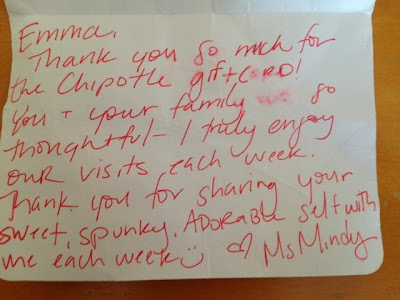 Emma,
Thank you so much for
the Chipotle gift CARD!
You + your family so
thoughtful - I truly enjoy
our visits each week.
Thank you for sharing your
sweet, spunky, ADORABLE self with
me each week :) ♡ Ms Mindy